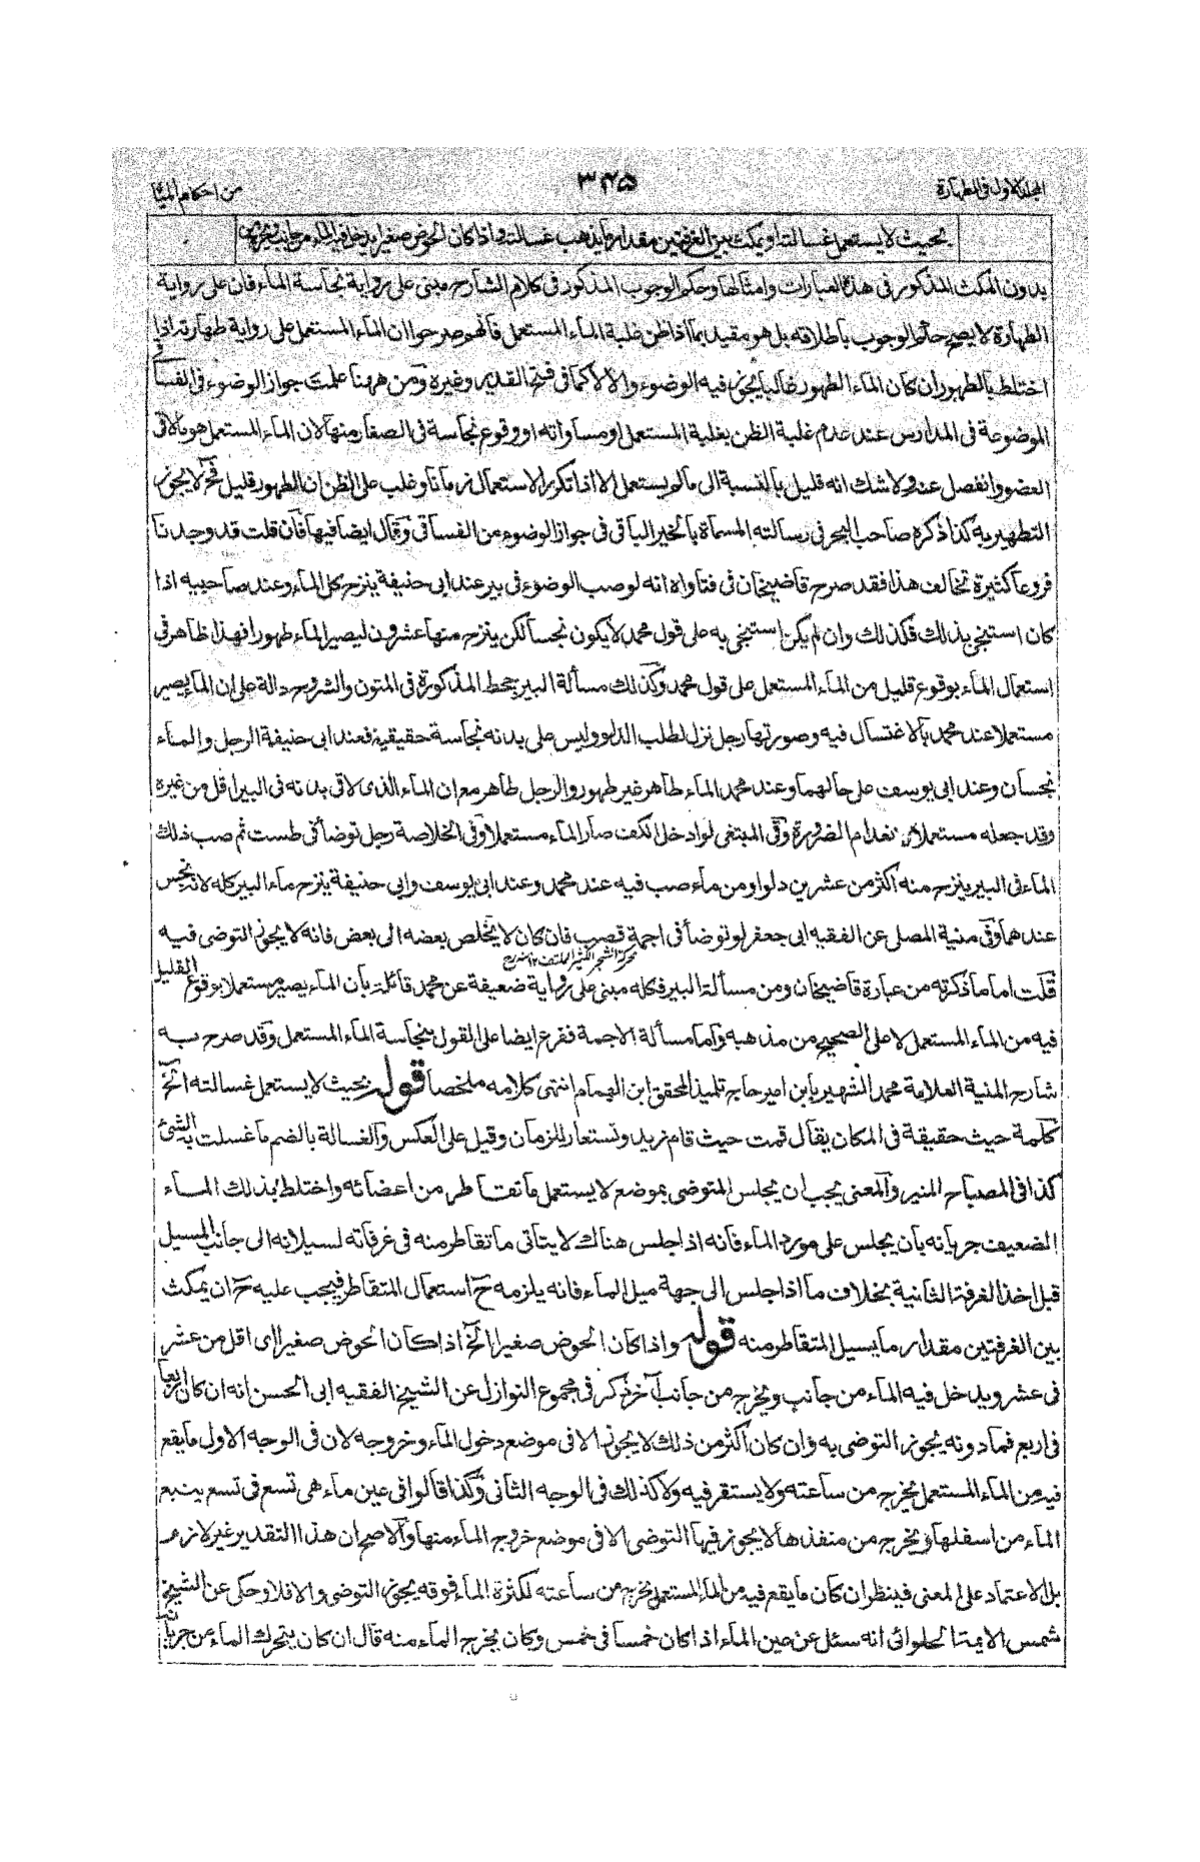 المجلد الاول فى الطهارة
۳۴۵
من احكام المياه
بحيث لا يستعمل غسالته او يمكث بين الغرفتين مقدار ما يذهب غسالته واذا كان الحوض صغيرا يدخل فيه الماء من جانب ويخرج
بدون المكث المذكور فى هذه العبارات وامثالها وحكم الوجوب المذكور فى كلام الشارح مبنى على رواية نجاسة الماء فان على رواية
الطهارة لا يصح حكم الوجوب باطلاقه بل هو مقيد بما اذا ظن غلبة الماء المستعمل فانهم صرحوا ان الماء المستعمل على رواية طهارته اذا
اختلط بالطهور ان كان الماء الطهور غالبا يجوز فيه الوضوء والا لا كما فى فتح القدير وغيره ومن ههنا علمت جواز الوضوء فى الفساقى
الموضوعة فى المدارس عند عدم غلبة الظن بغلبة المستعمل او مساواته او وقوع نجاسة فى الصغار منها لان الماء المستعمل هو ما لاقى
العضو وانفصل عنه ولا شك انه قليل بالنسبة الى ما لم يستعمل الا اذا تكرر الاستعمال زمانا وغلب على الظن ان الطهور قليل فح لا يجوز
التطهير به كذا ذكره صاحب البحر فى رسالته المسماة بالخير الباقى فى جواز الوضوء من الفساقى وقال ايضا فيها فان قلت قد وجدنا
فروعا كثيرة تخالف هذا فقد صرح قاضيخان فى فتاواه انه لو صب الوضوء فى بير عند ابى حنيفة ينزح كل الماء وعند صاحبيه اذا
كان استنجى بذلك فكذلك وان لم يكن استنجى به على قول محمد لا يكون نجسا لكن ينزح منها عشرون ليصير الماء طهورا فهذا ظاهر فى
استعمال الماء بوقوع قليل من الماء المستعمل على قول محمد وكذلك مسألة البير جحط المذكورة فى المتون والشروح دالة على ان الماء يصير
مستعملا عند محمد بالاغتسال فيه وصورتها رجل نزل لطلب الدلو وليس على بدنه نجاسة حقيقية فعند ابى حنيفة الرجل والماء
نجسان وعند ابى يوسف على حالهما وعند محمد الماء طاهر غير طهور والرجل طاهر مع ان الماء الذى لاقى بدنه فى البير اقل من غيره
وقد جعله مستعملا لانعدام الضرورة وفى المبتغى لو ادخل الكف صار الماء مستعملا وفى الخلاصة رجل توضأ فى طست ثم صب ذلك
الماء فى البير ينزح منه اكثر من عشرين دلوا ومن ماء صب فيه عند محمد وعند ابى يوسف وابى حنيفة ينزح ماء البير كله لانه نجس
عندهما وفى منية المصلى عن الفقيه ابى جعفر لو توضأ فى اجمة قصب فان كان لا يخلص بعضه الى بعض فانه لا يجوز التوضى فيه
محركة الشجر الكثير الملتف ۱۲
قلت اما ما ذكرته من عبارة قاضيخان ومن مسألة البير فكله مبنى على رواية ضعيفة عن محمد قائلة بأن الماء يصير مستعملا بوقوع القليل
فيه من الماء المستعمل لا على الصحيح من مذهبه واما مسألة الاجمة ففرع ايضا على القول بنجاسة الماء المستعمل وقد صرح به
شارح المنية العلامة محمد الشهير بابن امير حاج تلميذ المحقق ابن الهمام انتهى كلامه ملخصا قوله بحيث لا يستعمل غسالته الخ
كلمة حيث حقيقة فى المكان يقال قمت حيث قام زيد وتستعار للزمان وقيل على العكس والغسالة بالضم ما غسلت به الشئ
كذا فى المصباح المنير والمعنى يجب ان يجلس المتوضى بموضع لا يستعمل ما تقاطر من اعضائه واختلط بذلك الماء
الضعيف جريانه بان يجلس على مورد الماء فانه اذا جلس هناك لا يتأتى ما تقاطر منه فى غرفاته لسيلانه الى جانب المسيل
قبل اخذ الغرفة الثانية بخلاف ما اذا جلس الى جهة ميل الماء فانه يلزمه ح استعمال المتقاطر فيجب عليه ح ان يمكث
بين الغرفتين مقدار ما يسيل المتقاطر منه قوله واذا كان الحوض صغيرا الخ اذا كان الحوض صغيرا اى اقل من عشر
فى عشر ويدخل فيه الماء من جانب ويخرج من جانب آخر ذكر فى مجموع النوازل عن الشيخ الفقيه ابى الحسن انه ان كان اربعا
فى اربع فما دونه يجوز التوضى به وان كان اكثر من ذلك لا يجوز الا فى موضع دخول الماء وخروجه لان فى الوجه الاول ما يقع
فيه من الماء المستعمل يخرج من ساعته ولا يستقر فيه ولا كذلك فى الوجه الثانى وكذا قالوا فى عين ماء هى تسع فى تسع ينبع
الماء من اسفلها ويخرج من منفذها لا يجوز فيها التوضى الا فى موضع خروج الماء منها والاصح ان هذا التقدير غير لازم
بل الاعتماد على المعنى فينظر ان كان ما يقع فيه من الماء المستعمل يخرج من ساعته لكثرة الماء فوقه يجوز التوضى والا فلا وحكى عن الشيخ
شمس الايمة الحلوائى انه سئل عن عين الماء اذا كان خمسا فى خمس وكان يخرج الماء منه قال ان كان يتحرك الماء من جريانه